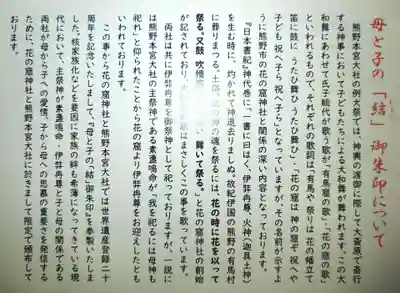 母と子の「結」御朱印について
熊野本宮大社の例大祭では、神輿の渡御に際して大斎原で斎行
する神事において子どもたちによる大和舞が舞われます。この大
和舞にあわせて氏子総代が歌う歌が「有馬窟の歌」、「花の窟の歌」
といわれるもので、それぞれの歌詞は「有馬や 祭りは 花の幡立て
笛に鼓に うたひ舞ひうたひ舞ひ」、「花の窟は 神の窟ぞ 祝へや
子ども 祝へ子ら 祝へ子ら」となっていますが、その名前が示すよ
うに熊野市の花の窟神社との関係の深い内容となっております。
『日本書紀』神代巻に、「一書に曰はく、伊弉冉尊、火神(迦具土神)
を生む時に、灼かれて神退去りましぬ。故紀伊国の熊野の有馬村
に葬りまつる。土俗、此の神の魂を祭るには、花の時に花を以って
祭る。又鼓 吹 幡旗を用て、歌い舞いて祭る。」と花の窟神社の創始
が記されており、大和舞の歌詞はまさしくこの事を歌っています。
両社は共に伊弉冉尊を御祭神として祀っておりますが、一説に
は熊野本宮大社の主祭神である素盞鳴命が、「我を祀るには母神も
祀れ」と仰られたことから花の窟より伊弉冉尊をお迎えしたとも
いわれております。
この事から花の窟神社と熊野本宮大社では世界遺産登録二十
周年を記念いたしまして、『母と子の「結」御朱印』を奉製いたしま
した。核家族化などを要因に家族の絆も希薄になってきている現
代において、主祭神が素盞鳴命 伊弉冉尊と子と母の関係である
両社が母から子への愛情、子から母への思慕の重要さを発信する
ために、花の窟神社と熊野本宮大社に於きまして限定で頒布して
おります。